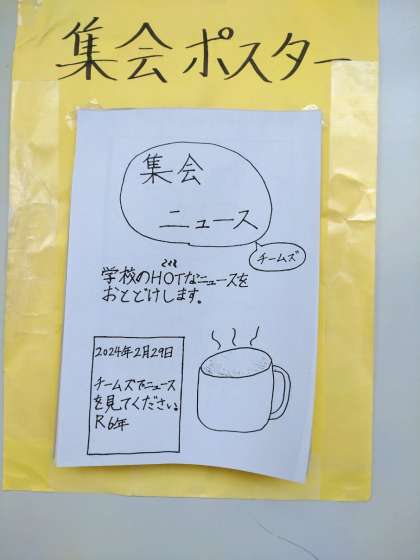 集会ポスター
集会
ニュース
チームズ
学校のHOTなニュースを
おとどけします。
2024年2月29日
チームズでニュース
を見てください。
R6年